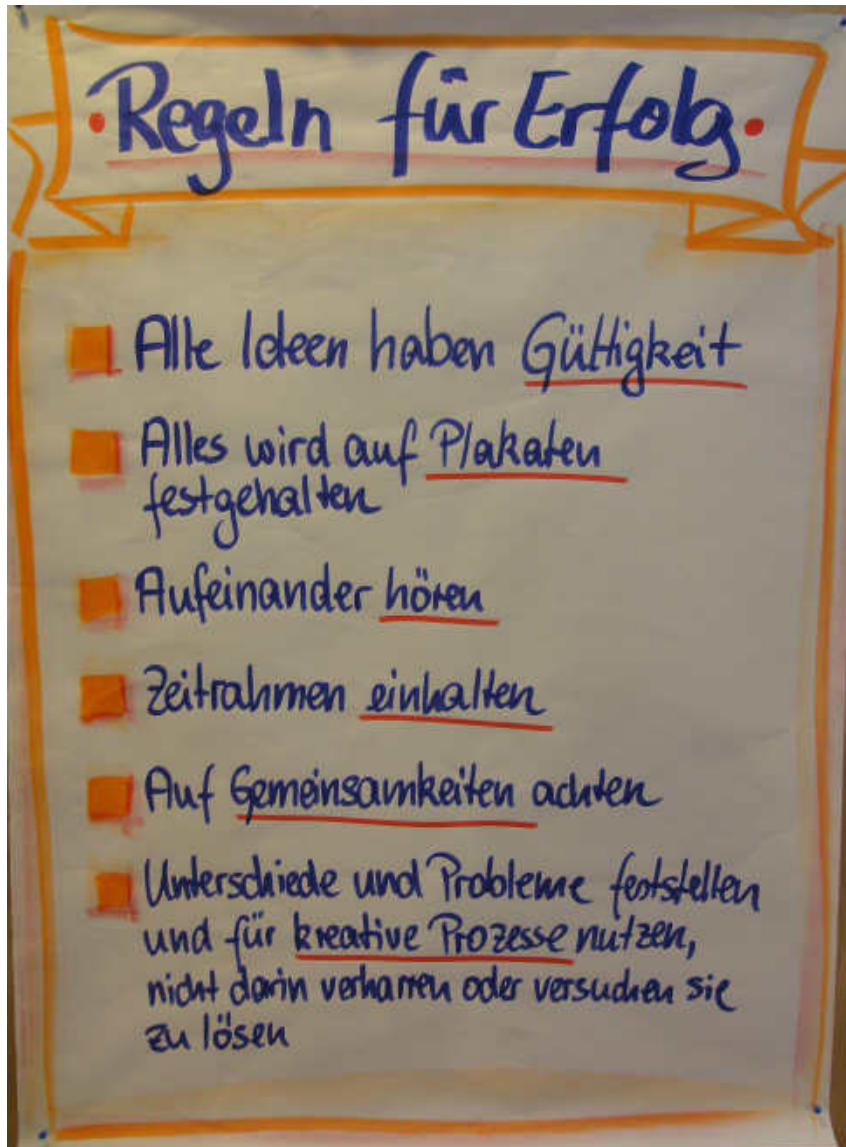 Regeln für Erfolg
Alle Ideen haben Gültigkeit
Alles wird auf Plakaten
festgehalten
Aufeinander hören
Zeitrahmen einhalten
Auf Gemeinsamkeiten achten
Unterschiede und Probleme feststellen
und für kreative Prozesse nutzen,
nicht darin verharren oder versuchen sie
zu lösen